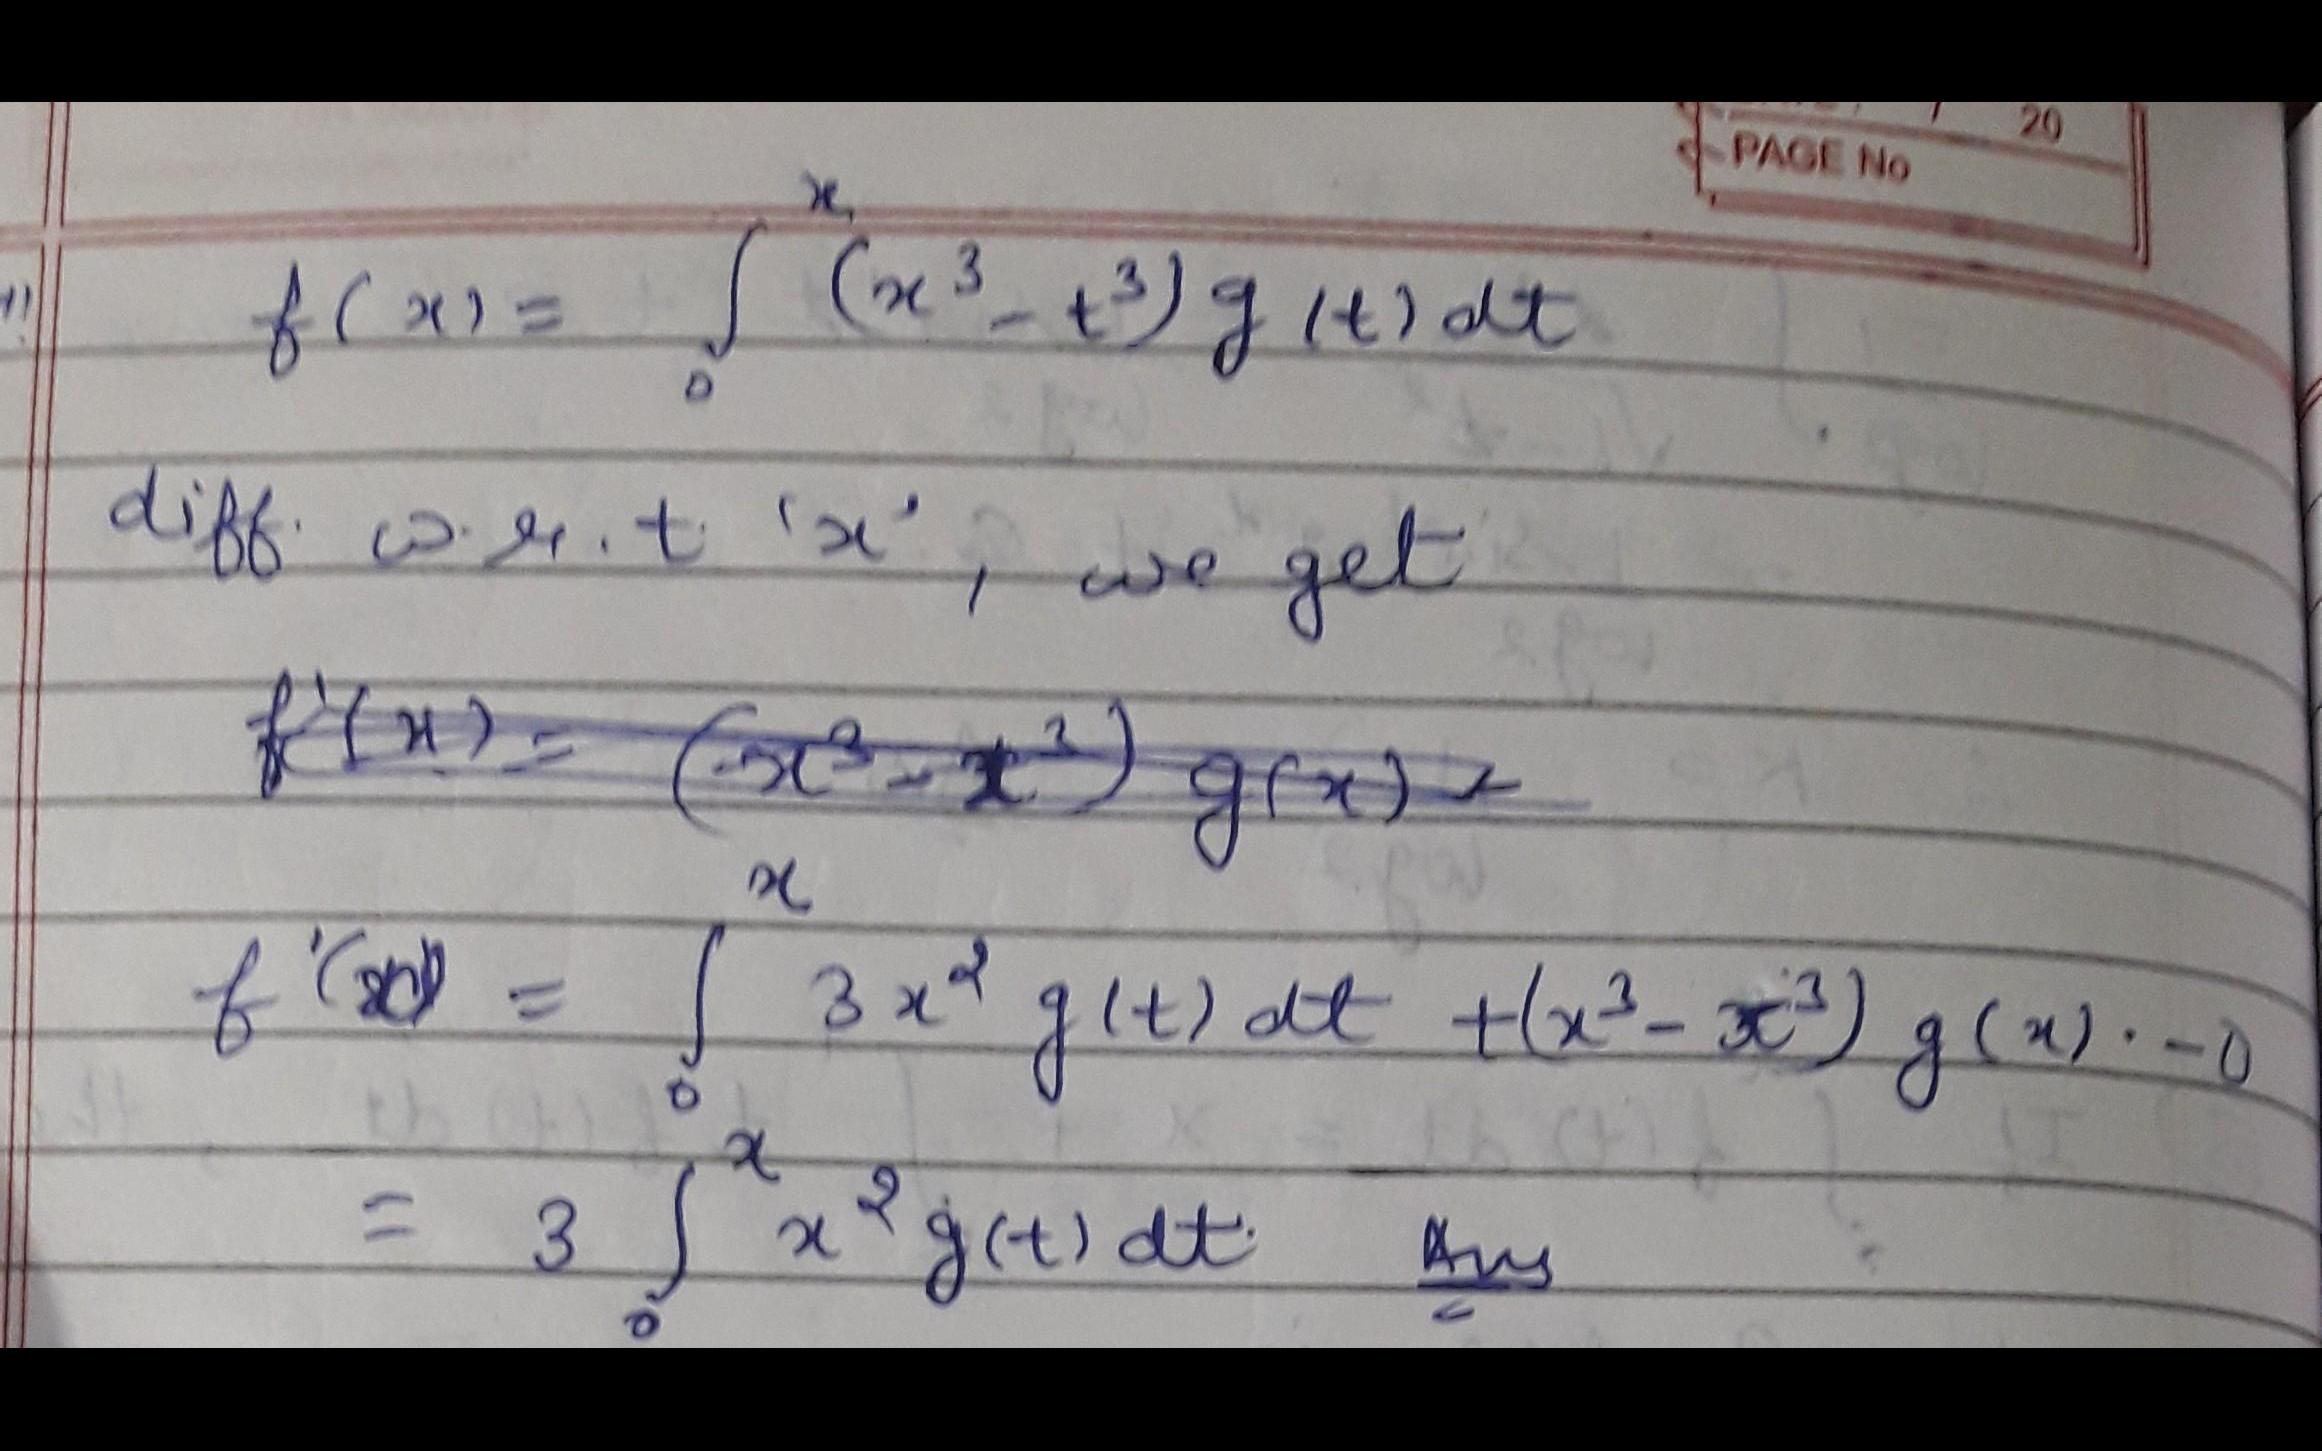 20
PAGE No
f(x) = ∫₀ˣ (x³ - t³) g(t) dt
diff. w.r.t. 'x', we get
f'(x) = (x³ - x³) g(x) +
f'(x) = ∫₀ˣ 3x² g(t) dt + (x³ - x³) g(x) · - 0
= 3 ∫₀ˣ x² g(t) dt. Ans